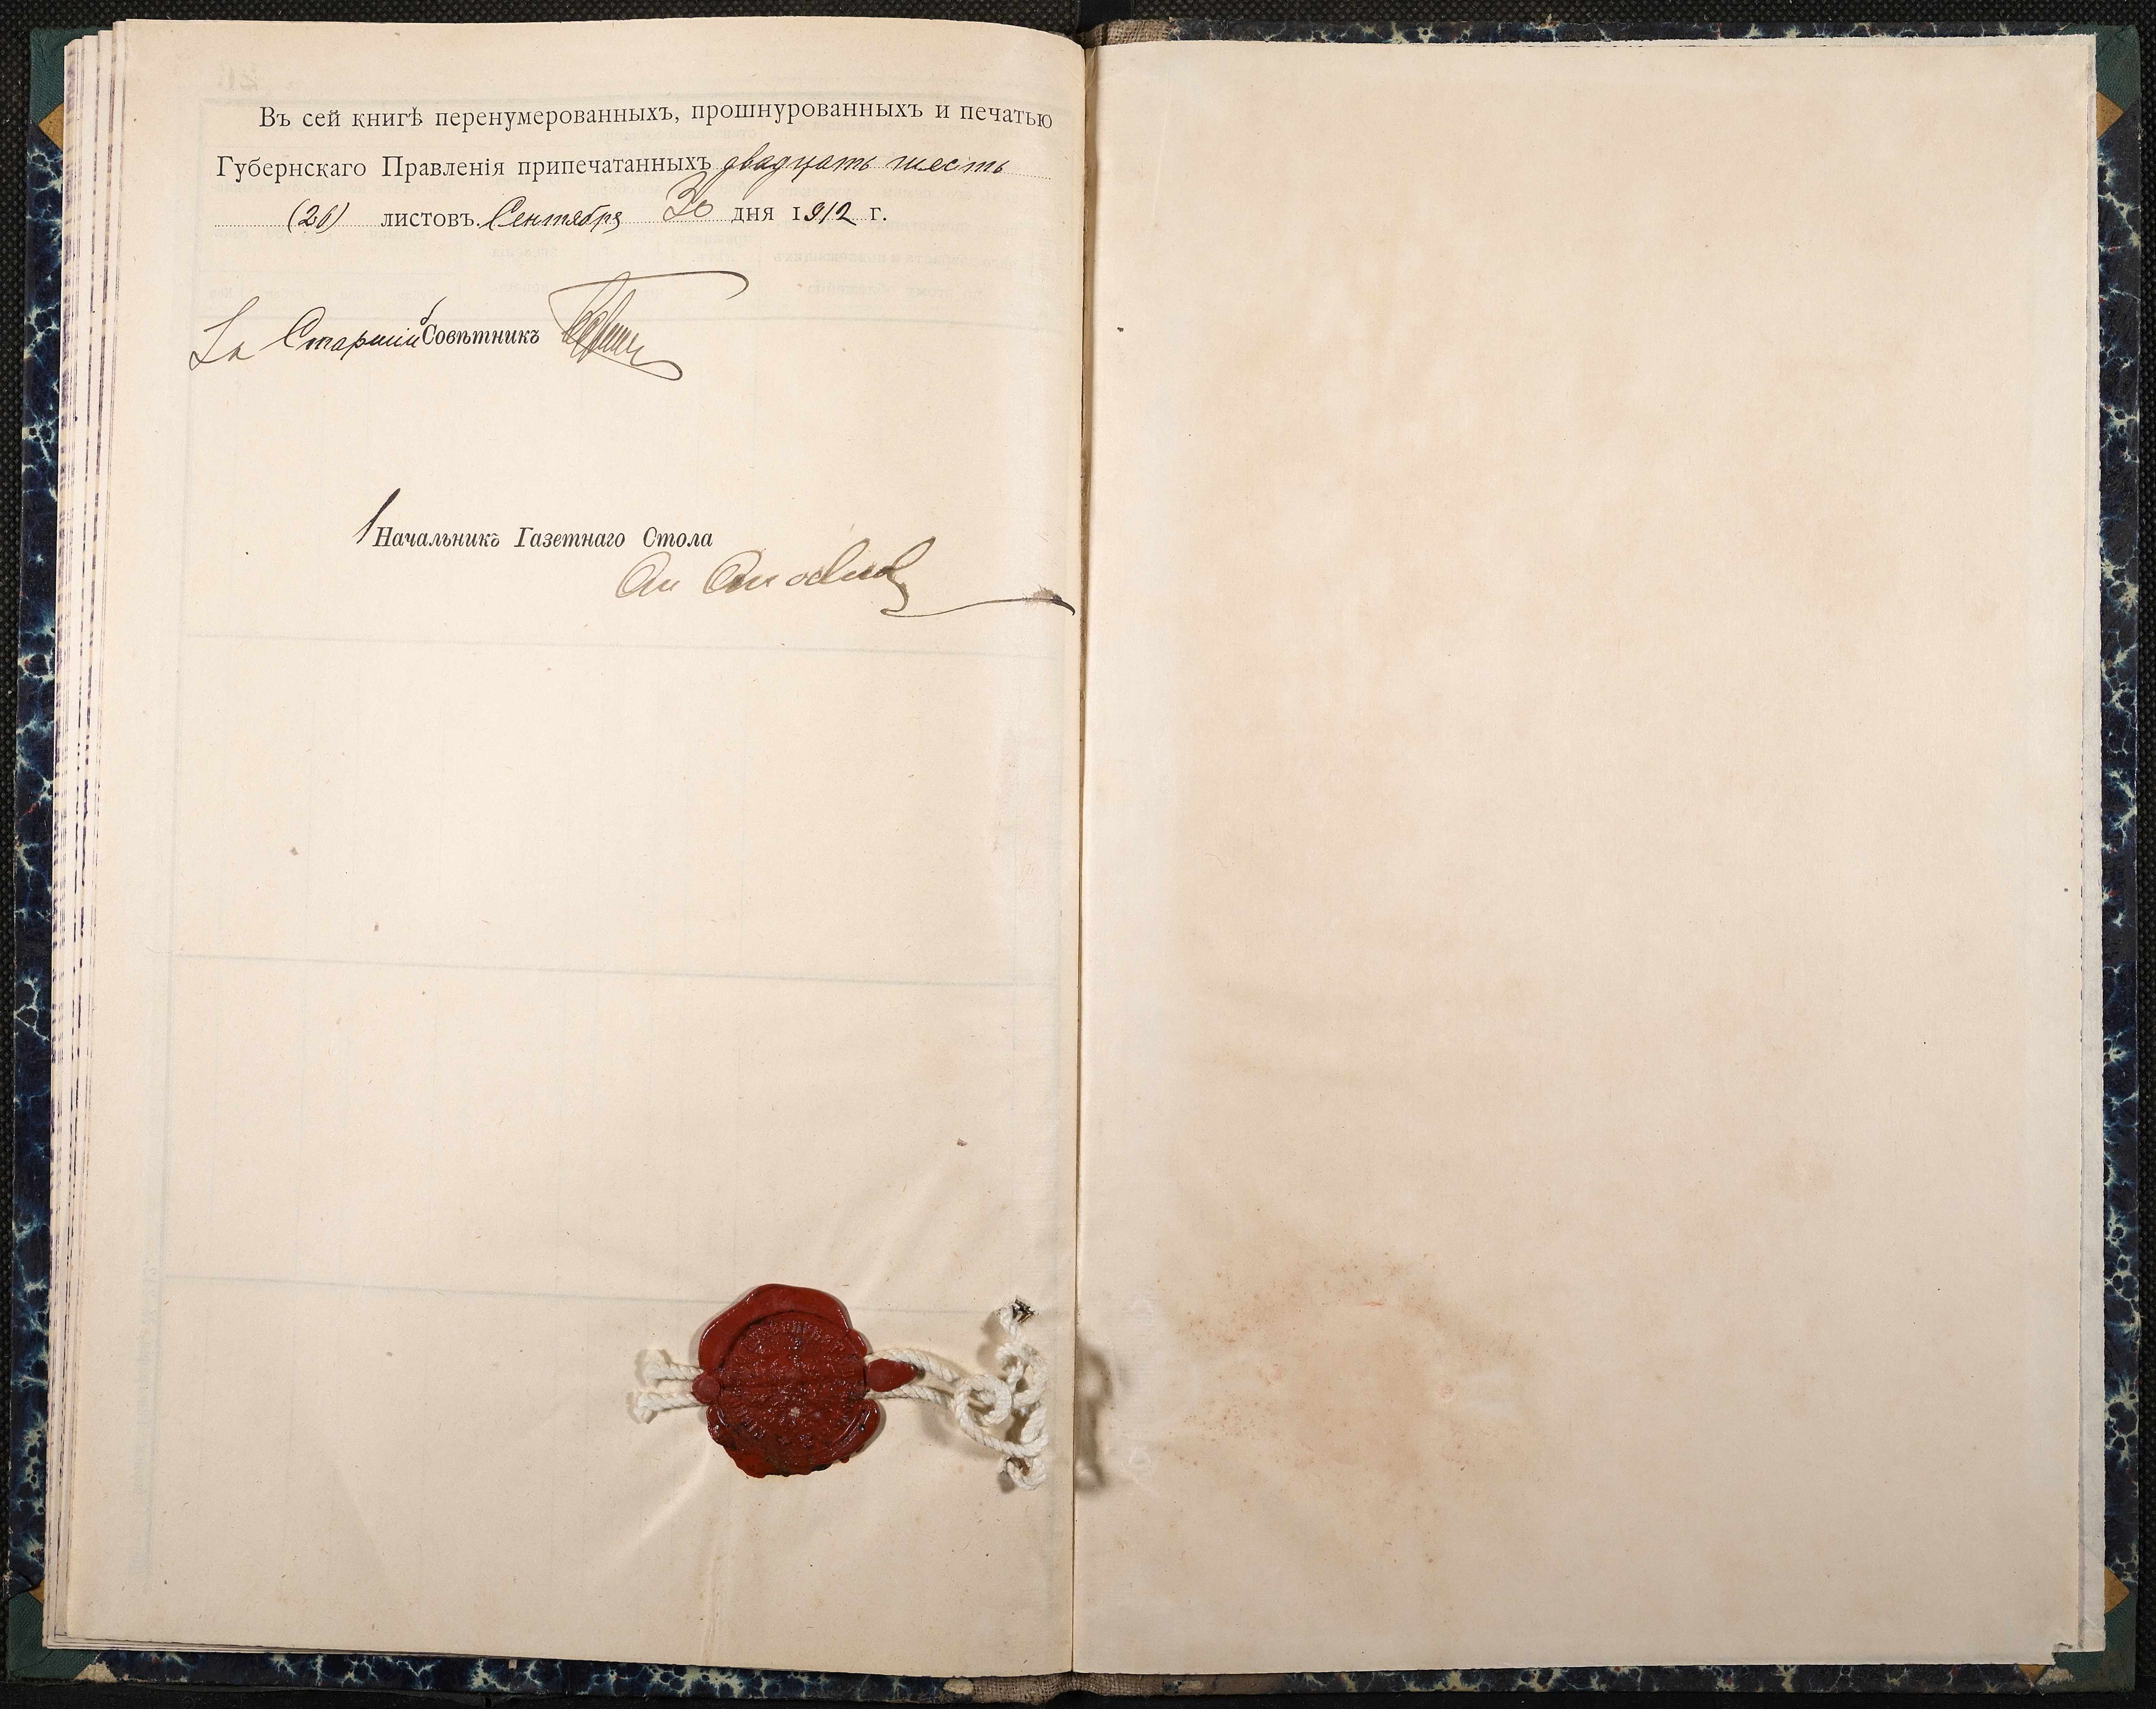 Въ сей книгѣ перенумерованныхъ, прошнурованныхъ и печатью
Губернскаго Правленія припечатанныхъ двадцать шесть
(26) листовъ. Сентября 30 дня 1912 г.
За Старшій Совѣтникъ
Начальникъ Газетнаго Стола